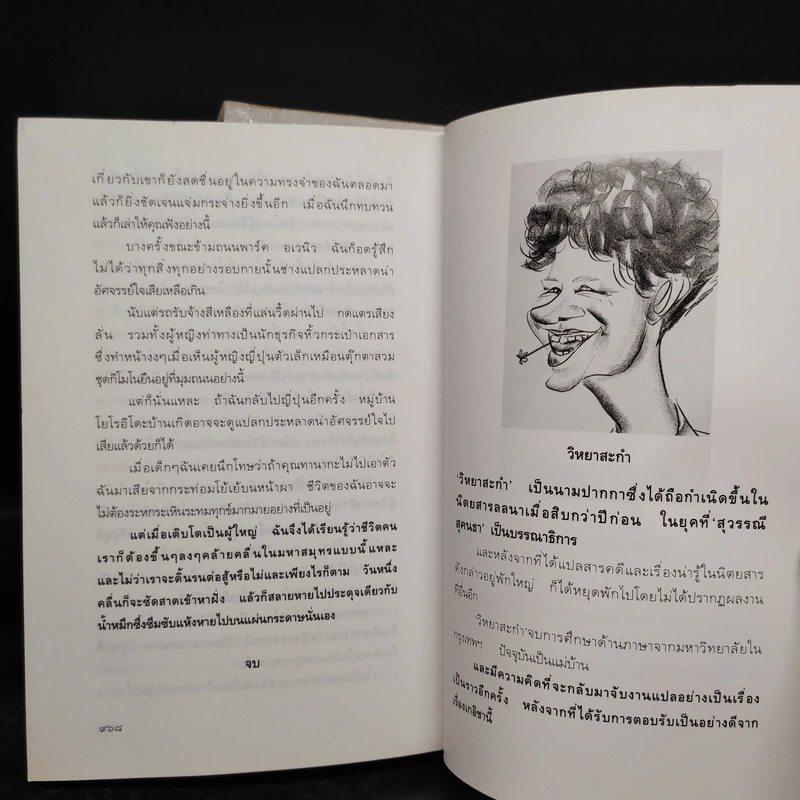 เกี่ยวกับเขาก็ยังสดชื่นอยู่ในความทรงจำของฉันตลอดมา
แล้วก็ยิ่งชัดเจนแจ่มกระจ่างยิ่งขึ้นอีก เมื่อฉันนึกทบทวน
แล้วก็เล่าให้คุณฟังอย่างนี้
บางครั้งขณะข้ามถนนพาร์ค อเวนิว ฉันก็อดรู้สึก
ไม่ได้ว่าทุกสิ่งทุกอย่างรอบกายนั้นช่างแปลกประหลาดน่า
อัศจรรย์ใจเสียเหลือเกิน
นับแต่รถรับจ้างสีเหลืองที่แล่นวี้ดผ่านไป กดแตรเสียง
ลั่น รวมทั้งผู้หญิงท่าทางเป็นนักธุรกิจหิ้วกระเป๋าเอกสาร
ซึ่งทำหน้างงๆเมื่อเห็นผู้หญิงญี่ปุ่นตัวเล็กเหมือนตุ๊กตาสวม
ชุดกิโมโนยืนอยู่ที่มุมถนนอย่างนี้
แต่ก็นั่นแหละ ถ้าฉันกลับไปญี่ปุ่นอีกครั้ง หมู่บ้าน
โยโรอิโดะบ้านเกิดอาจจะดูแปลกประหลาดน่าอัศจรรย์ใจไป
เสียแล้วด้วยก็ได้
เมื่อเด็กๆฉันเคยนึกโทษว่าถ้าคุณทานากะไม่ไปเอาตัว
ฉันมาเสียจากกระท่อมโย้เย้บนหน้าผา ชีวิตของฉันอาจจะ
ไม่ต้องระหกระเหินระทมทุกข์มากมายอย่างที่เป็นอยู่
แต่เมื่อเติบโตเป็นผู้ใหญ่ ฉันจึงได้เรียนรู้ว่าชีวิตคน
เราก็ต้องขึ้นๆลงๆคล้ายคลื่นในมหาสมุทรแบบนี้แหละ
และไม่ว่าเราจะดิ้นรนต่อสู้หรือไม่และเพียงไรก็ตาม วันหนึ่ง
คลื่นก็จะซัดสาดเข้าหาฝั่ง แล้วก็สลายหายไปประดุจเดียวกับ
น้ำหมึกซึ่งซึมซับแห้งหายไปบนแผ่นกระดาษนั่นเอง
จบ
๙๖๘
วิทยาสะกำ
'วิทยาสะกำ' เป็นนามปากกาซึ่งได้ถือกำเนิดขึ้นใน
นิตยสารลลนาเมื่อสิบกว่าปีก่อน ในยุคที่ 'สุวรรณี
สุคนธา' เป็นบรรณาธิการ
และหลังจากที่ได้แปลสารคดีและเรื่องน่ารู้ในนิตยสาร
ดังกล่าวอยู่พักใหญ่ ก็ได้หยุดพักไปโดยไม่ได้ปรากฏผลงาน
ที่อื่นอีก
'วิทยาสะกำ'จบการศึกษาด้านภาษาจากมหาวิทยาลัยใน
กรุงเทพฯ ปัจจุบันเป็นแม่บ้าน
และมีความคิดที่จะกลับมาจับงานแปลอย่างเป็นเรื่อง
เป็นราวอีกครั้ง หลังจากที่ได้รับการตอบรับเป็นอย่างดีจาก
เรื่องเกอิชานี้